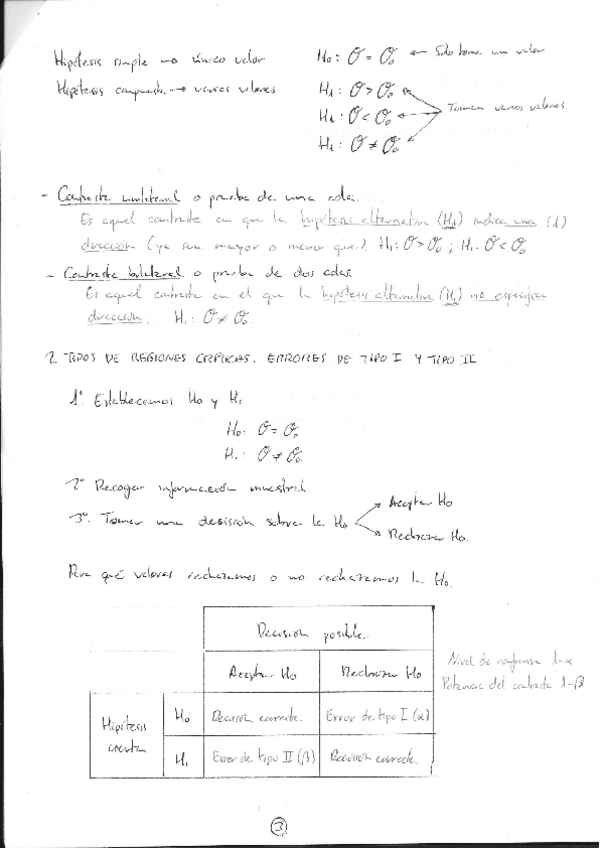 Hipótesis simple → único valor
H₀: θ = θ₀ ← Sólo toma un valor
Hipótesis compuesta → varios valores
H₁: θ > θ₀
H₁: θ < θ₀ ← Toman varios valores
H₁: θ ≠ θ₀
- Contraste unilateral o prueba de una cola.
Es aquel contraste en que la hipótesis alternativa (H₁) indica una (1)
dirección (ya sea mayor o menor que). H₁: θ > θ₀ ; H₁: θ < θ₀
- Contraste bilateral o prueba de dos colas.
Es aquel contraste en el que la hipótesis alternativa (H₁) no especifica
dirección. H₁: θ ≠ θ₀
2. TIPOS DE REGIONES CRÍTICAS. ERRORES DE TIPO I Y TIPO II
1º Establecemos H₀ y H₁
H₀: θ = θ₀
H₁: θ ≠ θ₀
2º Recoger información muestral
3º. Tomar una decisión sobre la H₀
Aceptar H₀
Rechazar H₀.
Para qué valores rechazamos o no rechazamos la H₀.
Decisión posible.
Aceptar H₀
Rechazar H₀
Nivel de confianza 1-α
Potencia del contraste 1-β
Hipótesis
cierta
H₀
Decisión correcta.
Error de tipo I (α)
H₁
Error de tipo II (β)
Decisión correcta.
3